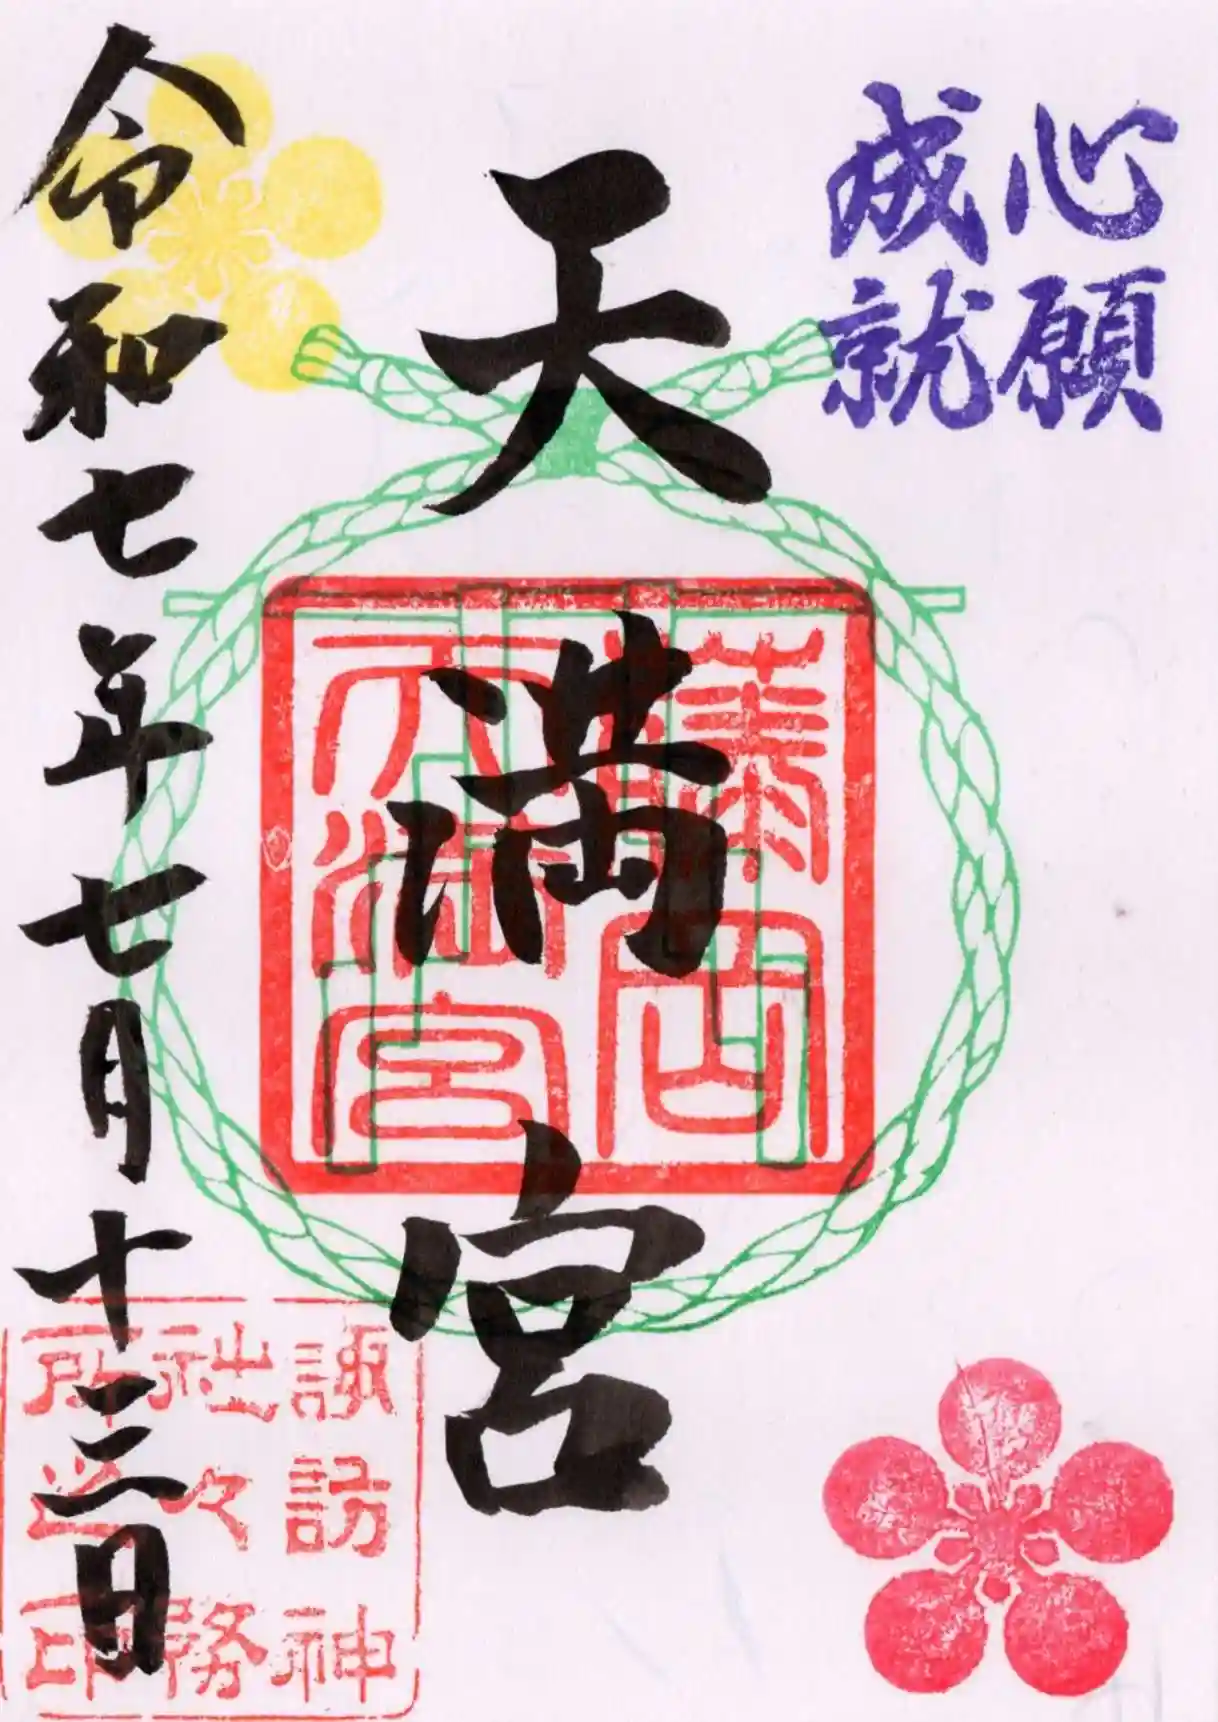 心願
成就
天満宮
岡
天満宮
令和七年七月十三日
諏訪神
社々務
所之印